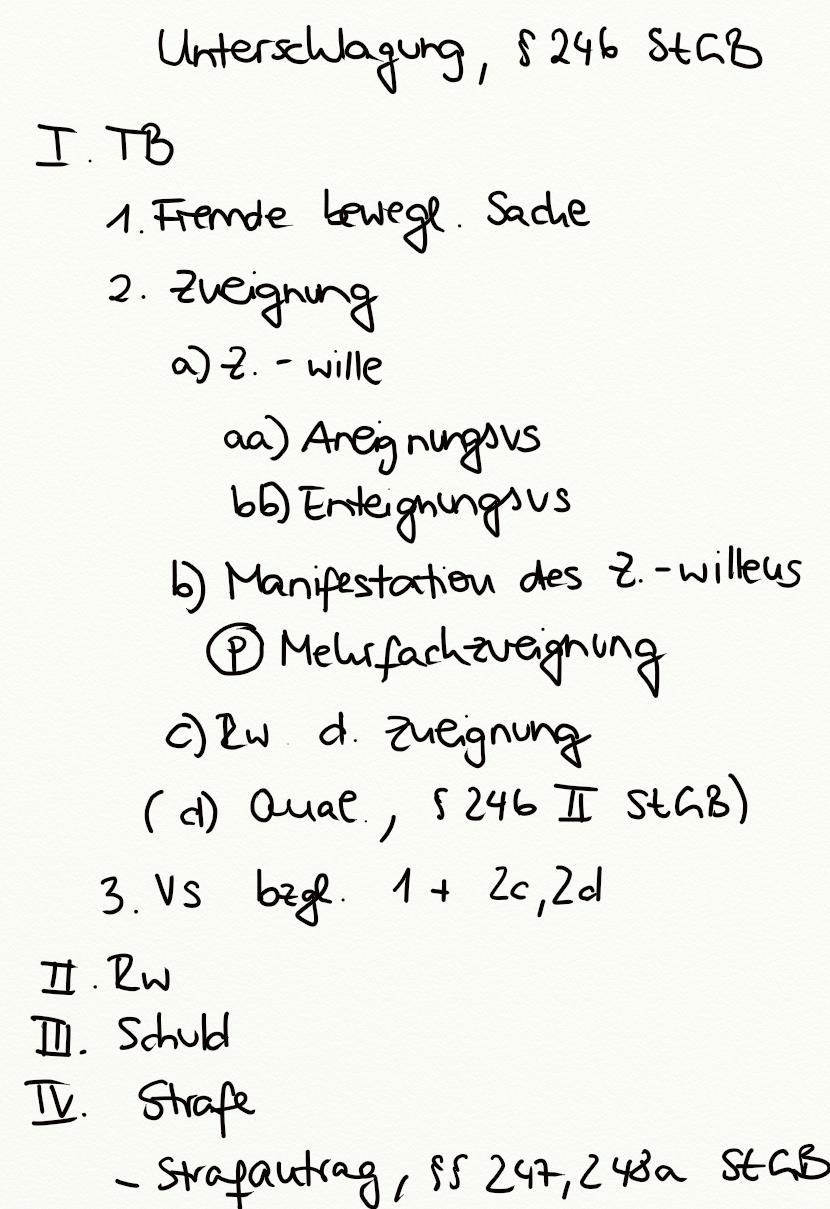 Unterschlagung, § 246 StGB
I. TB
1. Fremde bewegl. Sache
2. Zueignung
a) Z. - wille
aa) Aneignungsvs
bb) Enteignungsvs
b) Manifestation des Z. - willens
Ⓟ Mehrfachzueignung
c) Rw d. Zueignung
(d) Qual., § 246 II StGB)
3. Vs bzgl. 1 + 2c, 2d
II. Rw
III. Schuld
IV. Strafe
- Strafantrag, §§ 247, 248a StGB